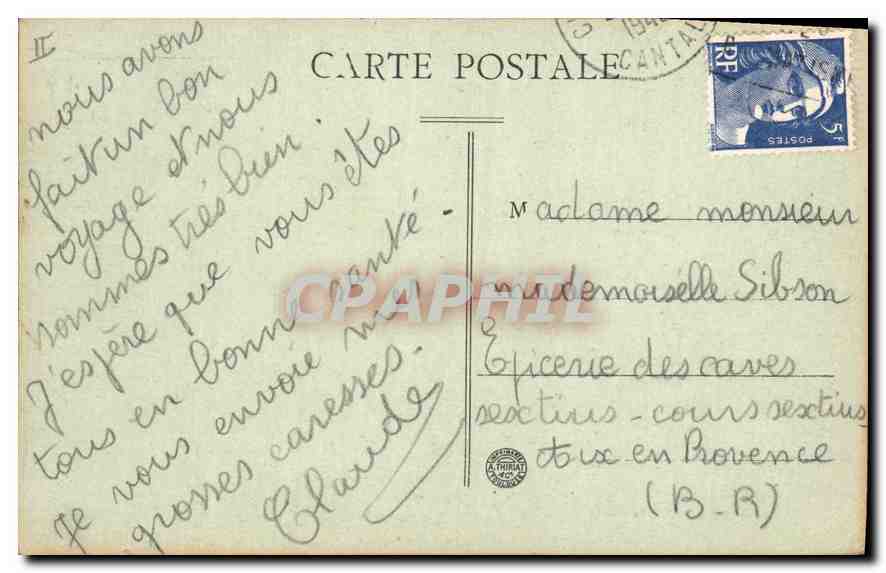 II
CARTE POSTALE
nous avons
fait un bon
voyage et nous
sommes très bien.
J'espère que vous êtes
tous en bonne santé.
Je vous envoie mes
grosses caresses.
Claude
CANTAL
RF
POSTES
5F
Madame monsieur
mademoiselle Sibson
Epicerie des caves
sextius - cours sextius
Aix en Provence
(B-R)
IMPRIMERIE
A. THIRIAT
& Cie
TOULOUSE
CPAPHIL